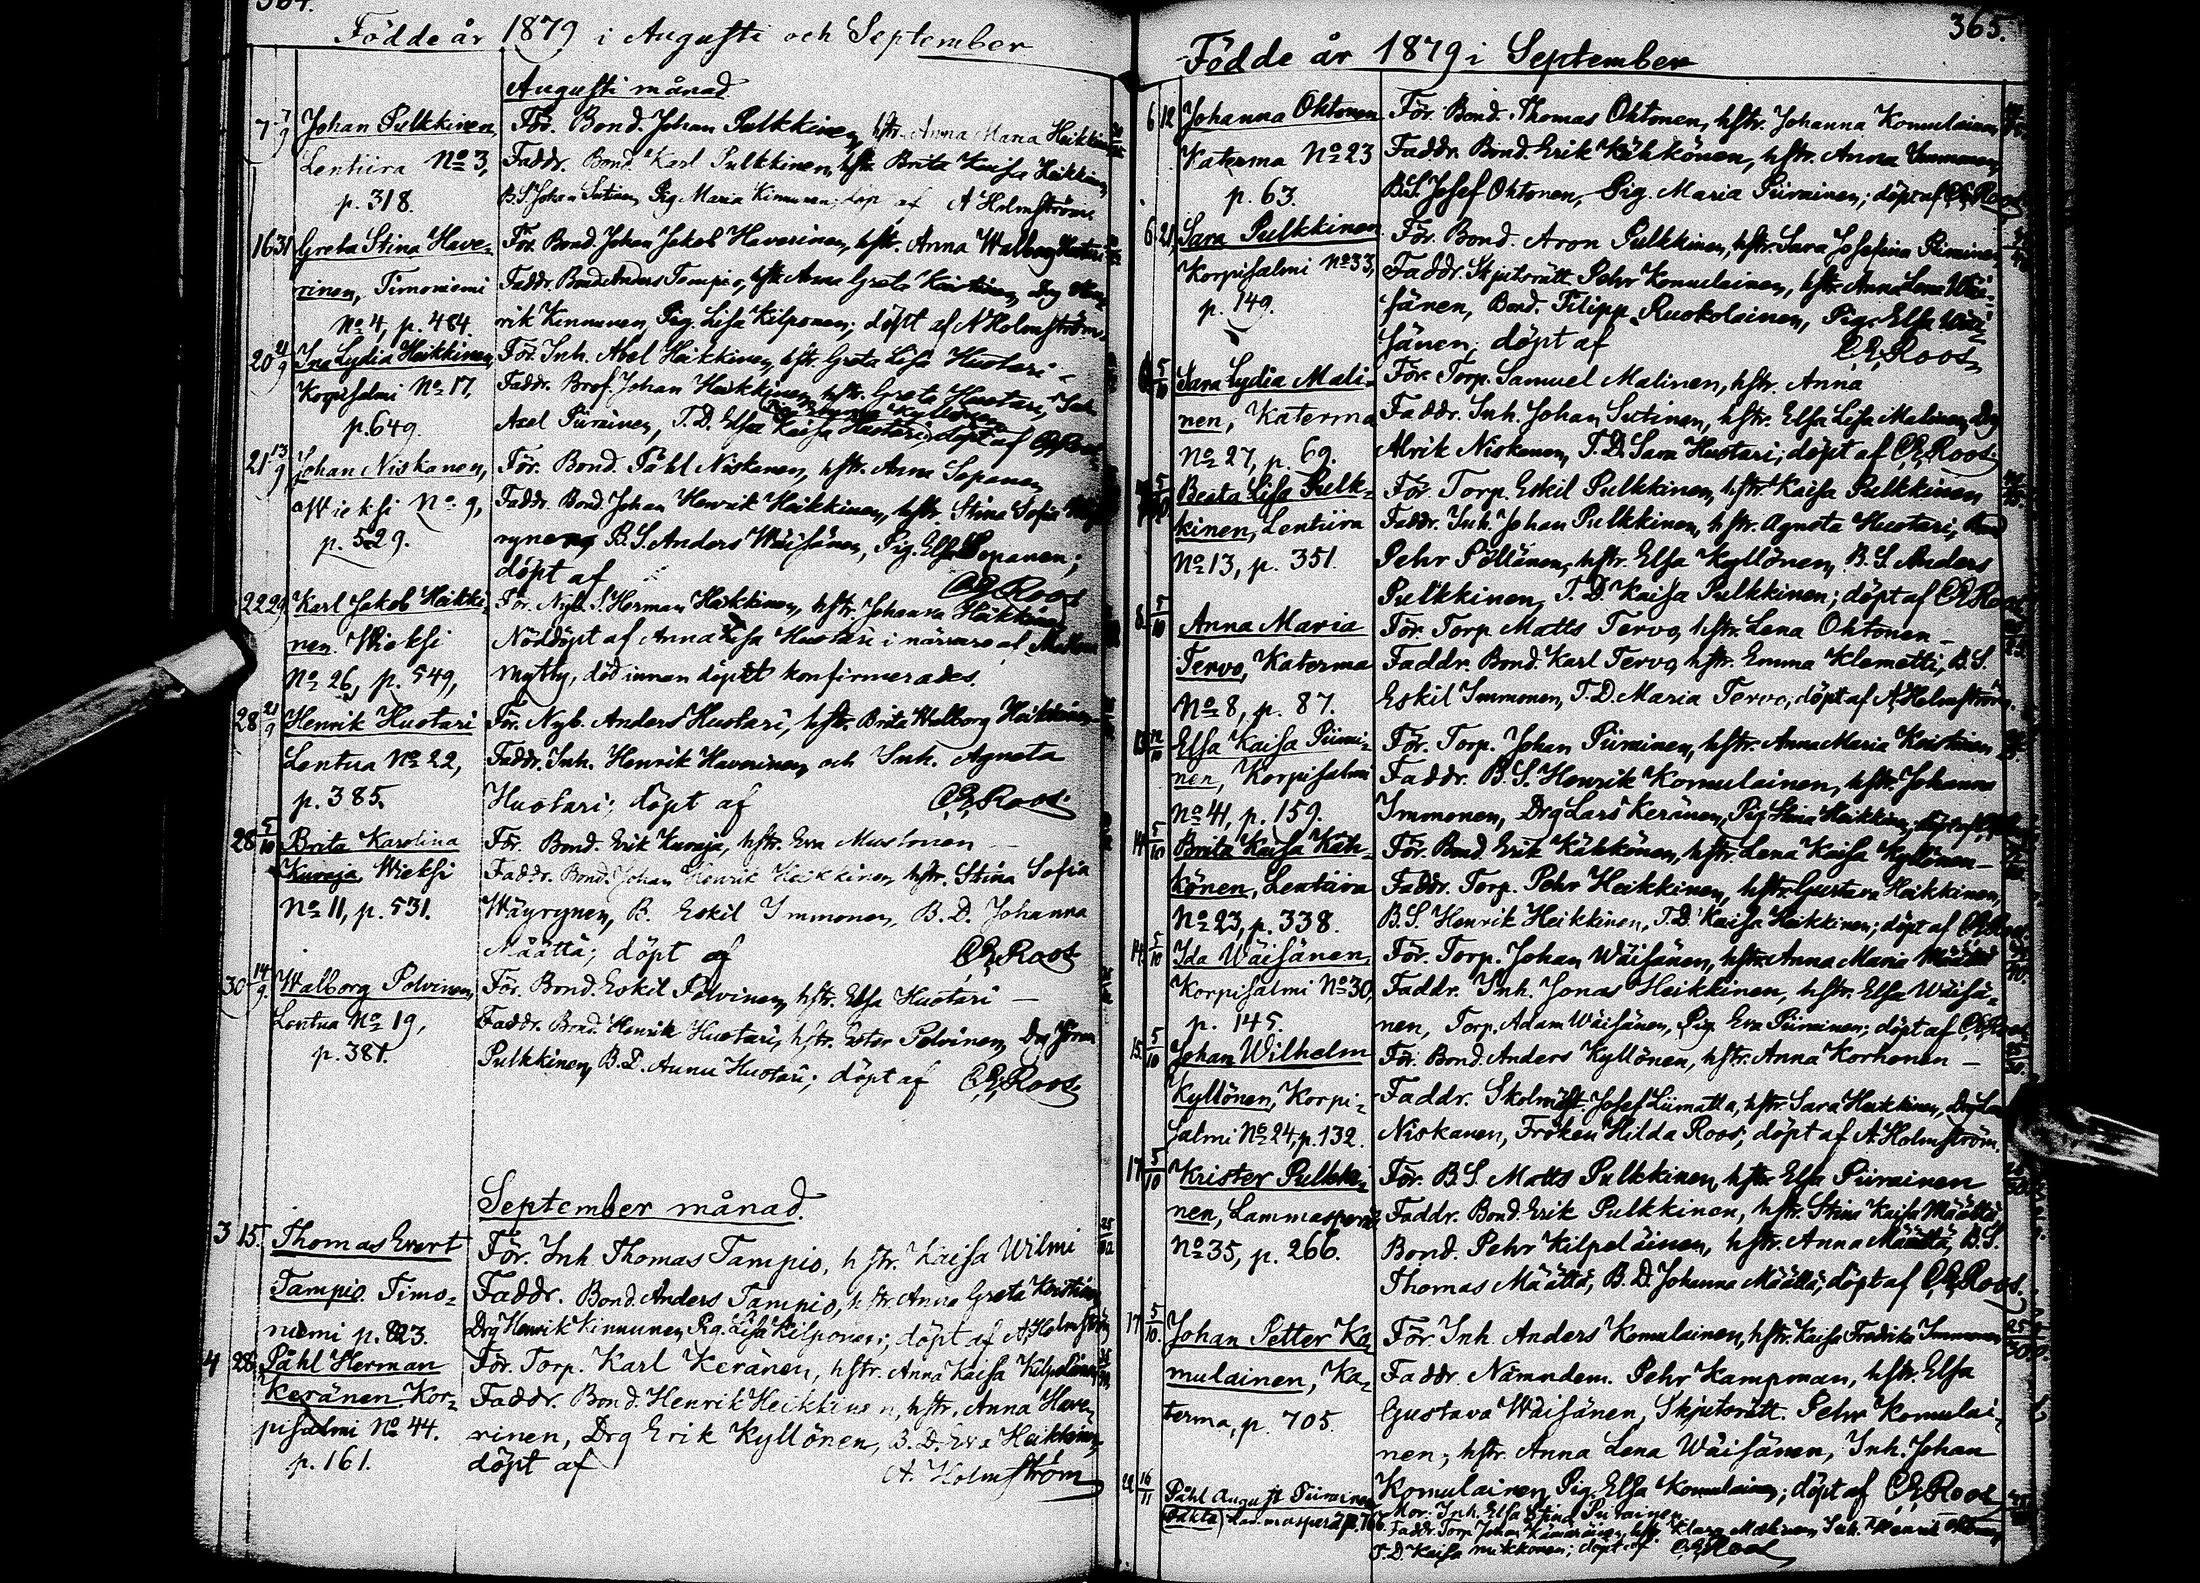 364.
Födde år 1879 i Augusti och September
Augusti månad
7 7/9 Johan Pulkkinen, För. Bond. Johan Pulkkinen, hstr. Anna Maria Heikkinen
Lentiira No 3, Faddr. Bond. Karl Pulkkinen, hstr. Brita Kaisa Heikkinen,
p. 318. B.S. Johan Sutinen, Pig. Maria Kinnunen; döpt af A Holmström.
16 31 Greta Stina Have- För. Bond. Johan Jakob Haverinen, hstr. Anna Walborg Huotari
rinen, Timoniemi Faddr. Bond Anders Tampio, hstr. Anna Greta Keistinen, Drg Hen-
No 4, p. 484. rik Kinnunen, Pig. Lisa Kilponen; döpt af A Holmström.
20 21/9 Ina Lydia Heikkinen, För. Inh. Abel Heikkinen, hstr. Greta Lisa Huotari –
Korpisalmi No 17, Faddr. Brof. Johan Heikkinen, hstr. Greta Huotari,
p. 649. Axel Piirainen, T.D. Elsa Kaisa Huotari; döpt af CE Roos
21 13/9 Johan Niskanen, För. Bond. Påhl Niskanen, hstr. Anna Sepänen
Wieksi No 9, Faddr. Bond. Johan Henrik Heikkinen, hstr. Stina Sofia Wäy-
p. 529. rynen, B.S. Anders Wäisänen, Pig. Elsa Sepanen;
döpt af CE Roos
22 29 Karl Jakob Heikki- För. Nyb. S. Herman Heikkinen, hstr. Johanna Heikkinen
nen Wieksi Nöddöpt af Anna Lisa Huotari i närvaro af
No 26, p. 549, död innan döpet konfirmerades.
28 21/9 Henrik Huotari För. Nyb. Anders Huotari, hstr. Brita Walborg Heikkinen
Lentua No 22, Faddr. Inh. Henrik Haverinen, och Inh. Agneta
p. 385. Huotari; döpt af CE Roos.
28 5/10 Brita Karolina För. Bond. Erik Kuvaja, hstr. Eva Mustonen –
Kuvaja Wieksi Faddr. Bond. Johan Henrik Heikkinen, hstr. Stina Sofia
No 11, p. 531. Wäyrynen, B. Eskil Immonen, B. D. Johanna
Määttä; döpt af CE Roos
30 14/9 Walborg Polvinen, För. Bond. Eskil Polvinen, hstr. Elsa Huotari –
Lentua No 19, Faddr. Bond. Henrik Huotari, hstr. Ester Polvinen, Drg Jöran
p. 381. Pulkkinen, B.D. Anna Huotari; döpt af CE Roos
September månad.
3 15. Thomas Evert För. Inh Thomas Tampio, hstr. Kaisa Wilmi
Tampio Timo- Faddr. Bond. Anders Tampio, hstr. Anna Greta Keistinen
niemi p. 823. Drg Henrik Kinnunen, Pig. Lisa Kilponen; döpt af A Holmström
4 28 Påhl Herman För. Torp. Karl Keränen, hstr. Anna Kaisa Kilpeläinen
Keränen Kor- Faddr. Bond. Henrik Heikkinen, hstr. Anna Have-
pisalmi No 44. rinen, Drg Erik Kyllönen, B. D. Eva Heikkinen,
p. 161. döpt af A. Holmström
365.
Födde år 1879 i September
6 12 Johanna Ohtonen För. Bond. Thomas Ohtonen, hstr. Johanna Komulainen,
Katerma No 23 Faddr. Bond. Erik Kähkönen, hstr. Anna Immonen,
p. 63. B.S. Josef Ohtonen, Pig. Maria Piirainen; döpt af CE Roos
6 21 Sara Pulkkinen För. Bond. Aron Pulkkinen, hstr. Sara Josefina Piirainen
Korpisalmi No 33, Faddr. Skjutsrätt. Pehr Komulainen, hstr. Anna Lena Wäi-
p. 149. sänen, Bond. Filipp Ruokolainen, Pig. Elsa Wäi-
sänen; döpt af CE Roos
5/10 Sara Lydia Mali- För. Torp. Samuel Malinen, hstr. Anna
nen, Katerma Faddr. Inh. Johan Sutinen, hstr. Elsa Lisa Malinen, Drg
No 27, p. 69. Alrik Niskanen, T.D. Sara Huotari; döpt af CE Roos.
Beata Lisa Pulk- För. Torp. Eskil Pulkkinen, hstr. Kaisa Pulkkinen
kinen, Lentiira Faddr. Inh. Johan Pulkkinen, hstr. Agneta Huotari, Bond
No 13, p. 351. Pehr Pöllänen, hstr. Elsa Kyllönen, B. S. Anders
Pulkkinen, T. D. Kaisa Pulkkinen; döpt af CE Roos
8 5/10 Anna Maria För. Torp Matts Tervo, hstr. Lena Ohtonen –
Tervo, Katerma Faddr. Bond. Karl Tervo, hstr. Emma Klemetti, B.S.
No 8, p. 87. Eskil Immonen, T.D. Maria Tervo; döpt af A Holmström.
12/10 Elsa Kaisa Piirai- För. Torp. Johan Piirainen, hstr. Anna Maria Keistinen
nen, Korpisalmi Faddr. B. S. Henrik Komulainen, hstr. Johanna
No 41, p. 159. Immonen, Drg Lars Keränen, Pig Stina Heikkinen; döpt af
14 5/10 Brita Kaisa Käh- För. Bond. Erik Kähkönen, hstr. Lena Kaisa Kyllönen –
könen, Lentiira Faddr. Torp. Pehr Heikkinen, hstr. Gustava Heikkinen,
No 23, p. 338. B.S. Henrik Heikkinen, T.D. Kaisa Heikkinen; döpt af CE Roos
14 5/10 Ida Wäisänen, För. Torp. Johan Wäisänen, hstr. Anna Maria Määttä
Korpisalmi No 30, Faddr. Inh. Jonas Heikkinen, hstr. Elsa Wäisä-
p. 145. nen, Torp. Adam Wäisänen, Pig. Eva Piirainen; döpt af CE Roos
15. 5/10 Johan Wilhelm För. Bond. Anders Kyllönen, hstr. Anna Korhonen –
Kyllönen, Korpi- Faddr. Skolmäst. Josef Liimatta, hstr. Sara Heikkinen, Drg
salmi No 24, p. 132. Niskanen, Fröken Hilda Roos; döpt af A. Holmström.
17 5/10 Krister Pulkki- För. B. S. Matts Pulkkinen, hstr. Elsa Piirainen
nen, Lammasperä Faddr. Bond. Erik Pulkkinen, hstr. Stina Kaisa Määttä,
No 35, p. 266. Bond. Pehr Kilpeläinen, hstr. Anna Määttä, B.S.
Thomas Määttä, B. D. Johanna Määttä; döpt af CE Roos.
17 5/10. Johan Petter Ko- För. Inh Anders Komulainen, hstr. Kaisa Fredrika Immonen
mulainen, Ka- Faddr Nämndem. Pehr Kampman, hstr. Elsa
terma, p. 705. Gustava Wäisänen, Skjutsrätt. Pehr Komulai-
nen; hstr. Anna Lena Wäisänen, Inh. Johan
Komulainen, Pig. Elsa Komulainen; döpt af CE Roos
22 16/11 Påhl August Piirainen Mor. Inh. Elsa Stina Piirainen
(oäkta) Lammasperä p. 766. Faddr. Torp Johan Kämäräinen, hstr Klara Malinen, Inh. Henrik
T. D. Kaisa Mikkonen; döpt af CE Roos